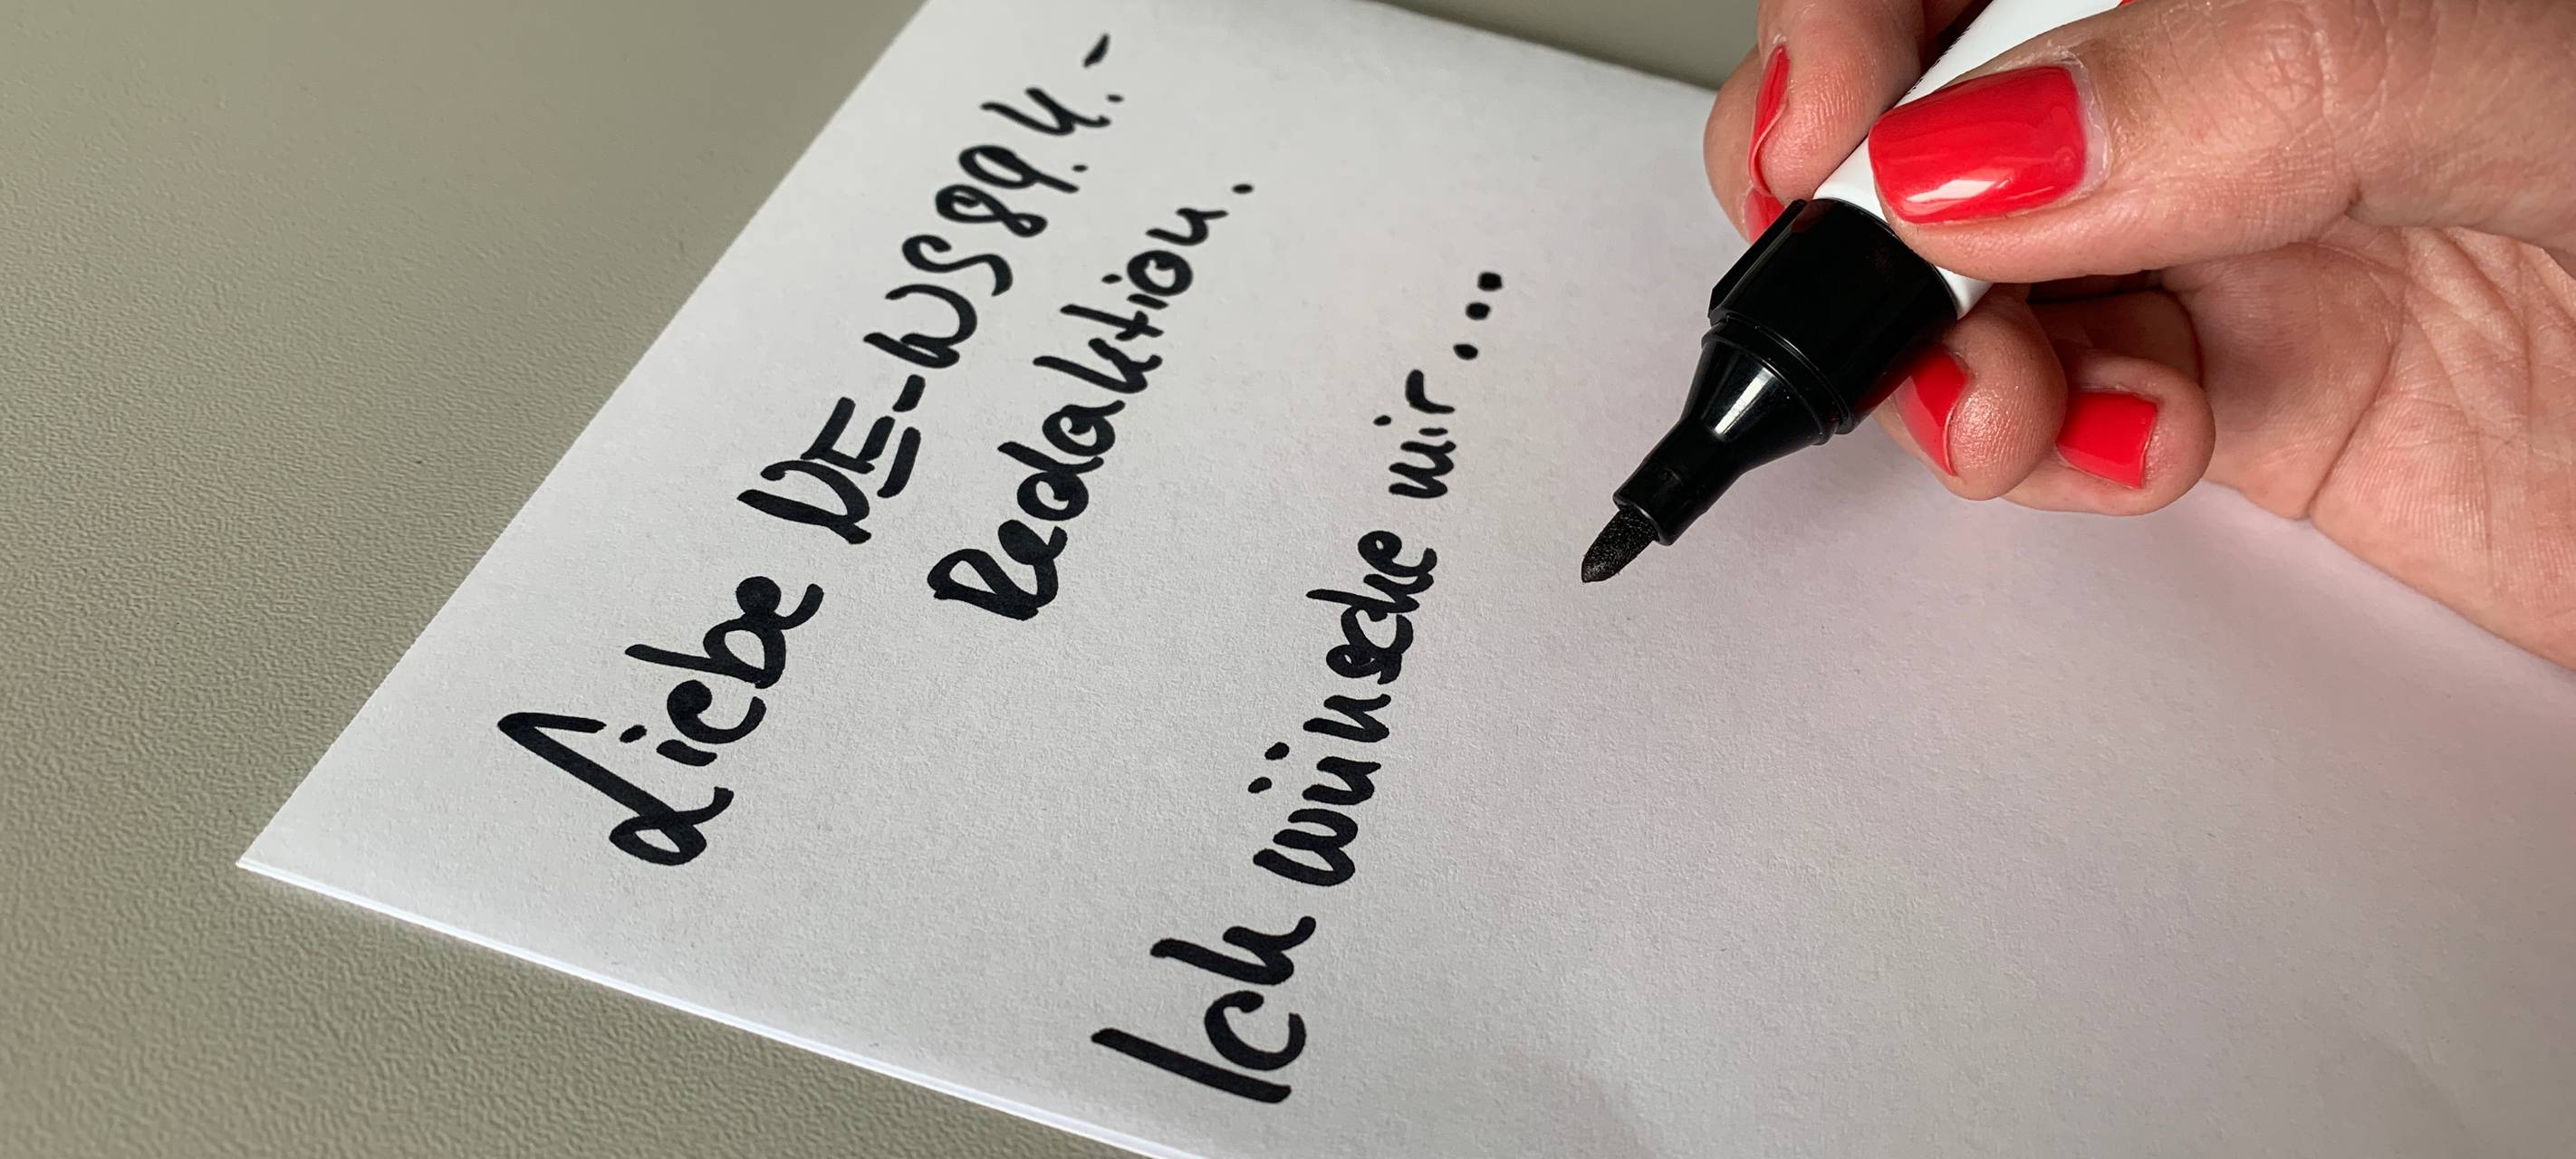 Liebe DE-WS89.4.-
Redaktion.
Ich wünsche mir...